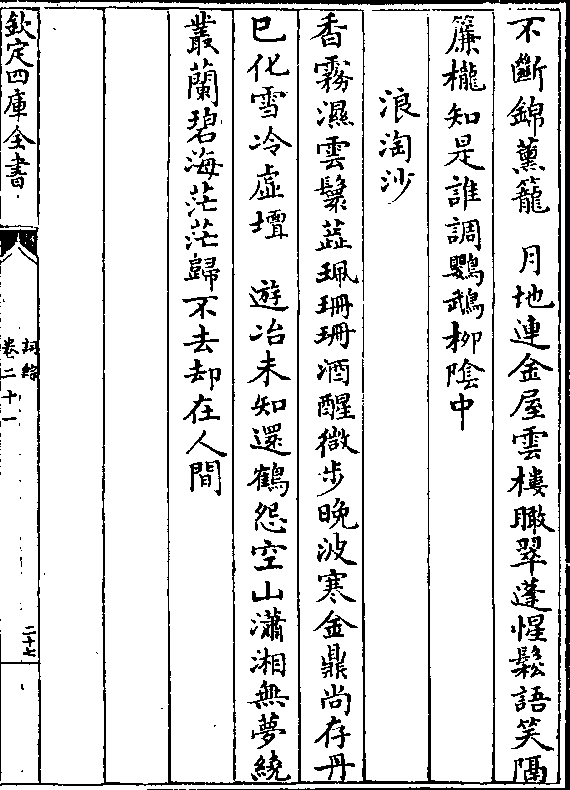 不斷錦薰籠　月地連金屋雲樓瞰翠蓬惺鬆語笑隔
簾櫳知是誰調鸚鵡栁陰中
浪淘沙
香霧濕雲鬟蕋珮珊珊酒醒微步晚波寒金鼎尚存丹
已化雪冷虚壇　遊冶未知還鶴怨空山瀟湘無夢繞
叢蘭碧海茫茫歸不去却在人間
欽定四庫全書
詞綜
卷二十一
二十七